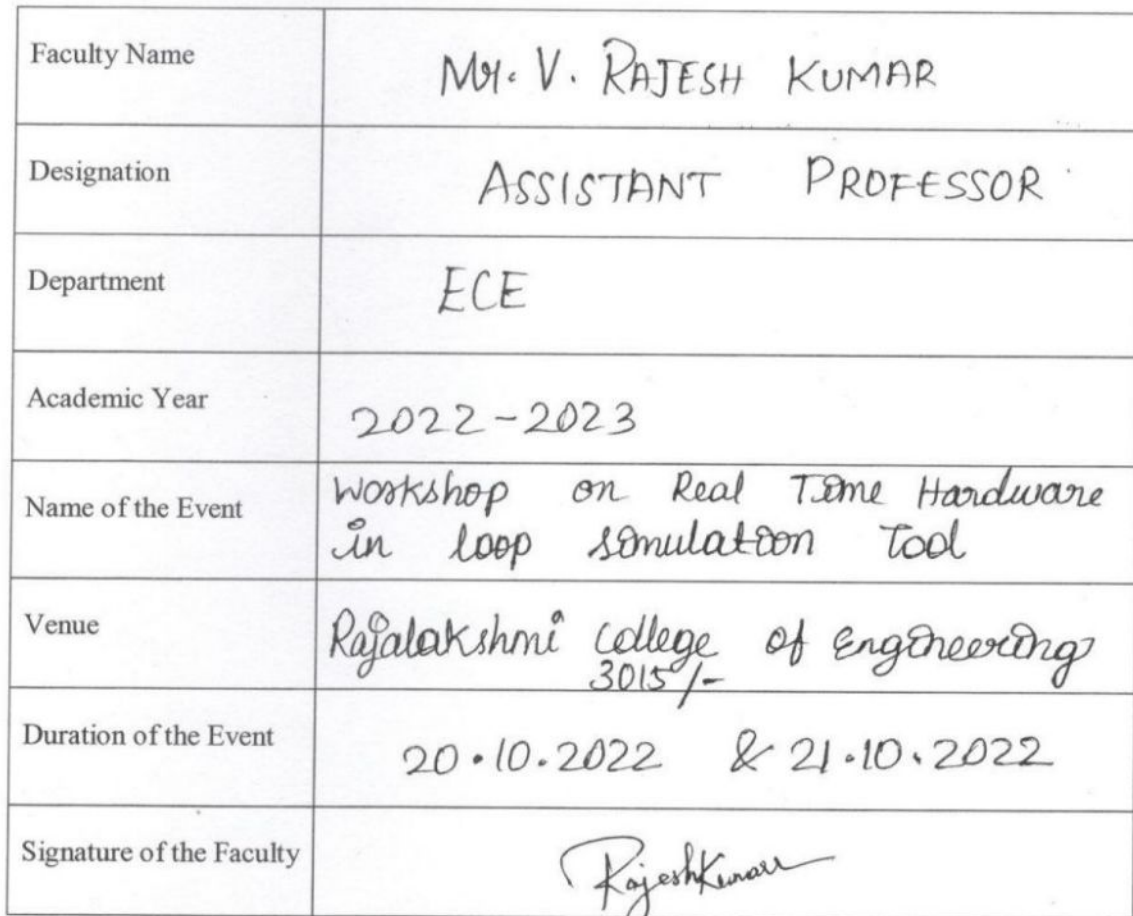 Faculty Name
Mr. V. RAJESH KUMAR
Designation
ASSISTANT PROFESSOR
Department
ECE
Academic Year
2022-2023
Name of the Event
Workshop on Real Time Hardware
in loop simulation Tool
Venue
Rajalakshmi college of Engineering
3015/-
Duration of the Event
20.10.2022 & 21.10.2022
Signature of the Faculty
RajeshKumar